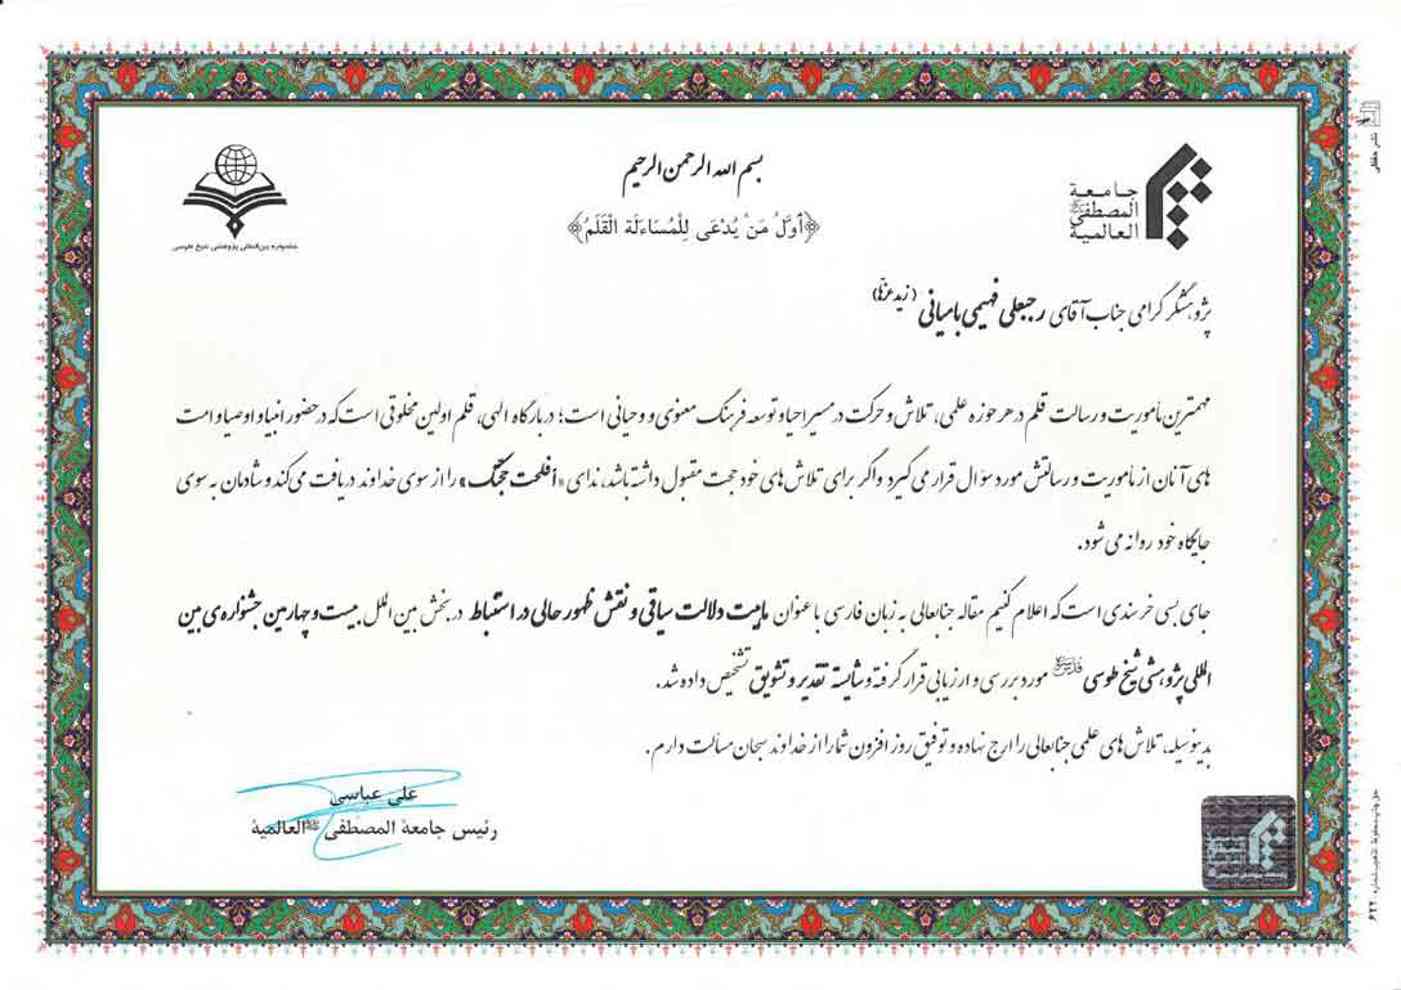 بسم الله الرحمن الرحیم
﴿أوَّلُ مَنْ یُدْعَی لِلْمُسَاءَلَة الْقَلَمُ﴾
جامعة
المصطفی ﷺ
العالمیة
جشنواره بین‌المللی پژوهشی شیخ طوسی
پژوهشگر گرامی جناب آقای رجبعلی فهیمی بامیانی (زید عزّه)
مهمترین مأموریت و رسالت قلم در هر حوزه علمی، تلاش و حرکت در مسیر احیا و توسعه فرهنگ معنوی و وحیانی است؛ در بارگاه الهی، قلم اولین مخلوقی است که در حضور انبیا و اوصیا و امت
های آنان از مأموریت و رسالتش مورد سؤال قرار می گیرد و اگر برای تلاش های خود حجت مقبول داشته باشد، ندای «أفلحت حجتک» را از سوی خداوند دریافت می کند و شادمان به سوی
جایگاه خود روانه می شود.
جای بسی خرسندی است که اعلام کنیم مقاله جنابعالی به زبان فارسی با عنوان ماهیت دلالت سیاقی و نقش ظهور حالی در استنباط در بخش بین الملل بیست و چهارمین جشنواره‌ی بین
المللی پژوهشی شیخ طوسی مورد بررسی و ارزیابی قرار گرفته و شایسته تقدیر و تشویق تشخیص داده شد.
بدینوسیله، تلاش های علمی جنابعالی را ارج نهاده و توفیق روز افزون شما را از خداوند سبحان مسألت دارم.
علی عباسی
رئیس جامعة المصطفی ﷺ العالمیة